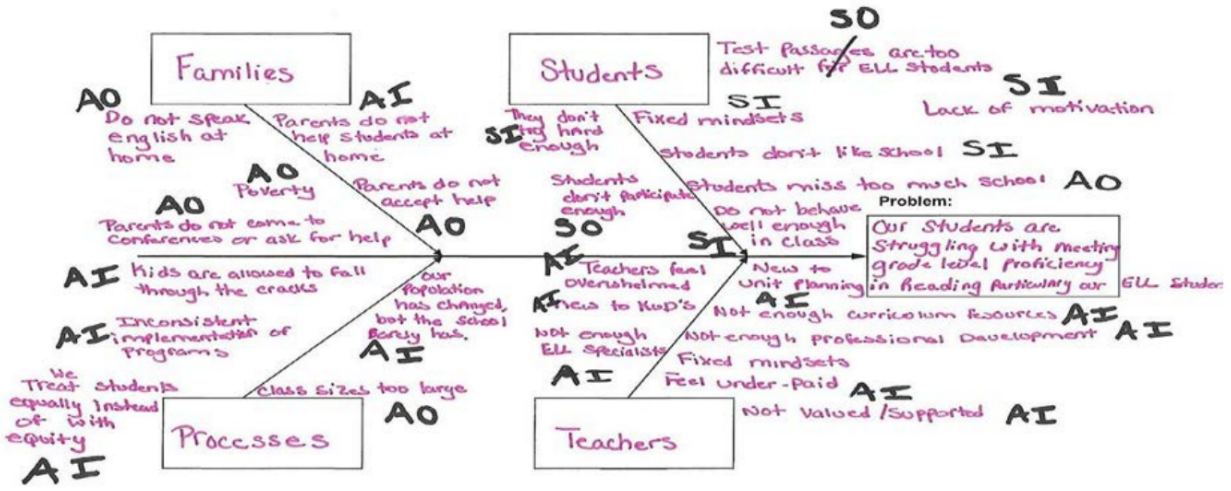 Families
AO
Do not speak
english at
home
AI
Parents do not
help students at
home
AO
Poverty
Parents do not
accept help
AO
AO
Parents do not come to
conferences or ask for help
Students
SO
Test Passages are too
difficult for ELL Students
SI
Lack of motivation
SI
They don't
try hard
enough
SI
Fixed mindsets
Students don't like school SI
Students
don't participate
enough
SO
Students miss too much school AO
Do not behave
well enough
in class
SI
Problem:
Our Students are
Struggling with meeting
grade level proficiency
in Reading Particularly our ELL Studen
AI Kids are allowed to fall
through the cracks
AI Inconsistent
implementation of
Programs
Our
Population
has changed,
but the school
Rarely has.
AI
We
Treat Students
equally instead
of with
equity
AI
Class sizes too large
AO
Processes
AI
Teachers feel
overwhelmed
AI new to KUD's
Not enough
ELL Specialists
AI
New to
Unit Planning
AI
Not enough curriculum resources AI
Not enough professional Development AI
Fixed mindsets
Feel under-paid AI
Not valued/supported AI
Teachers